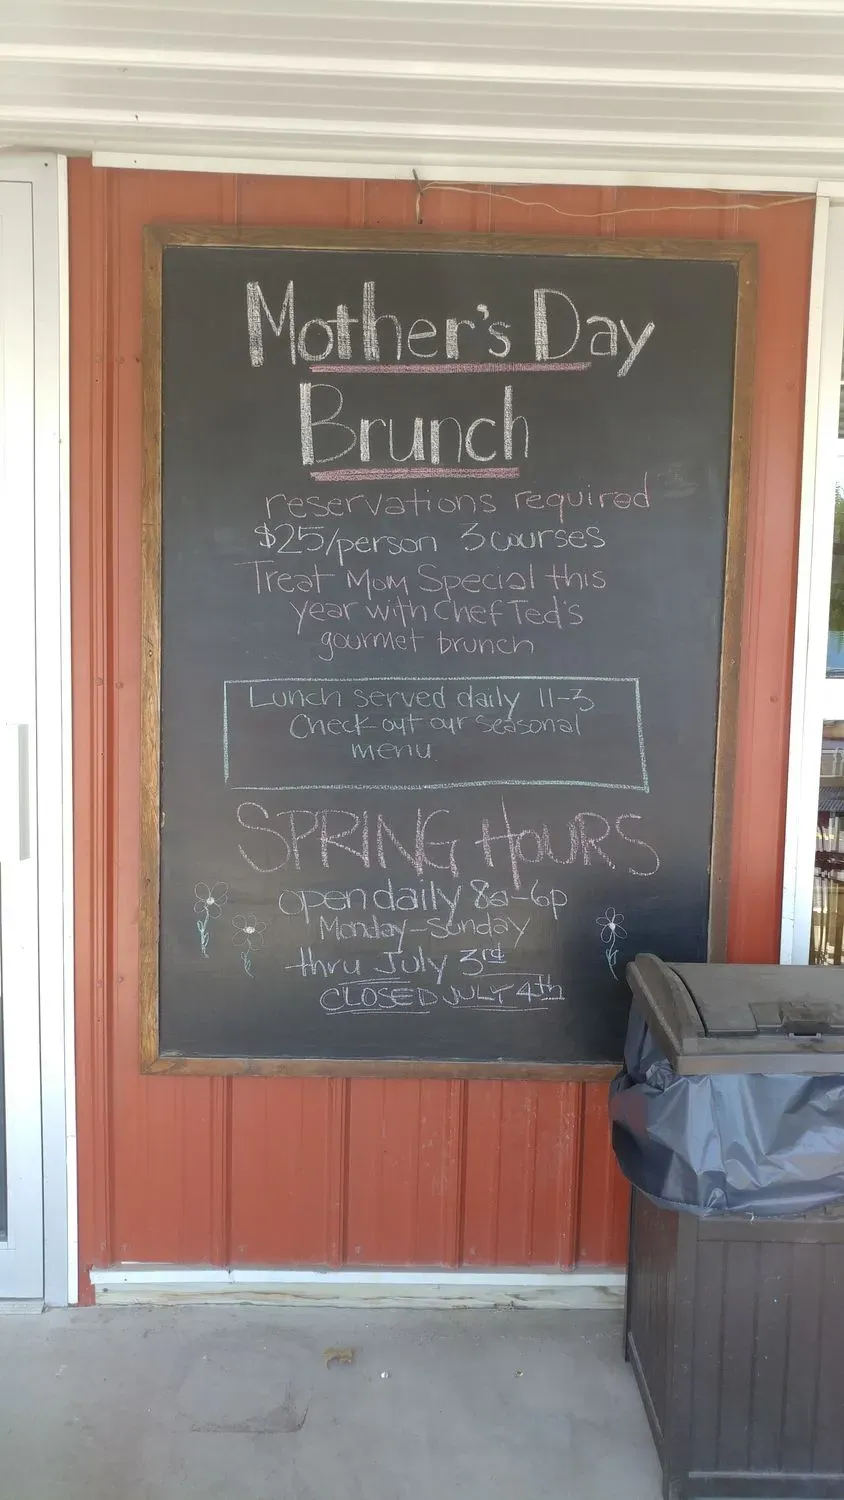 Mother's Day
Brunch
reservations required
$25/person 3 courses
Treat Mom Special this
year with Chef Ted's
gourmet brunch
Lunch served daily 11-3
Check out our seasonal
menu.
SPRING HOURS
open daily 8a-6p
Monday-Sunday
thru July 3rd
CLOSED JULY 4th